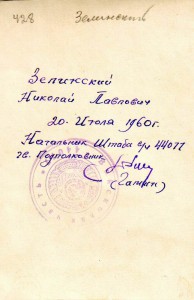 428 Зелинский
Зелинский
Николай Павлович
20 Июля 1960г.
Начальник Штаба в/ч 44077
гв. Подполковник
(Ганин)